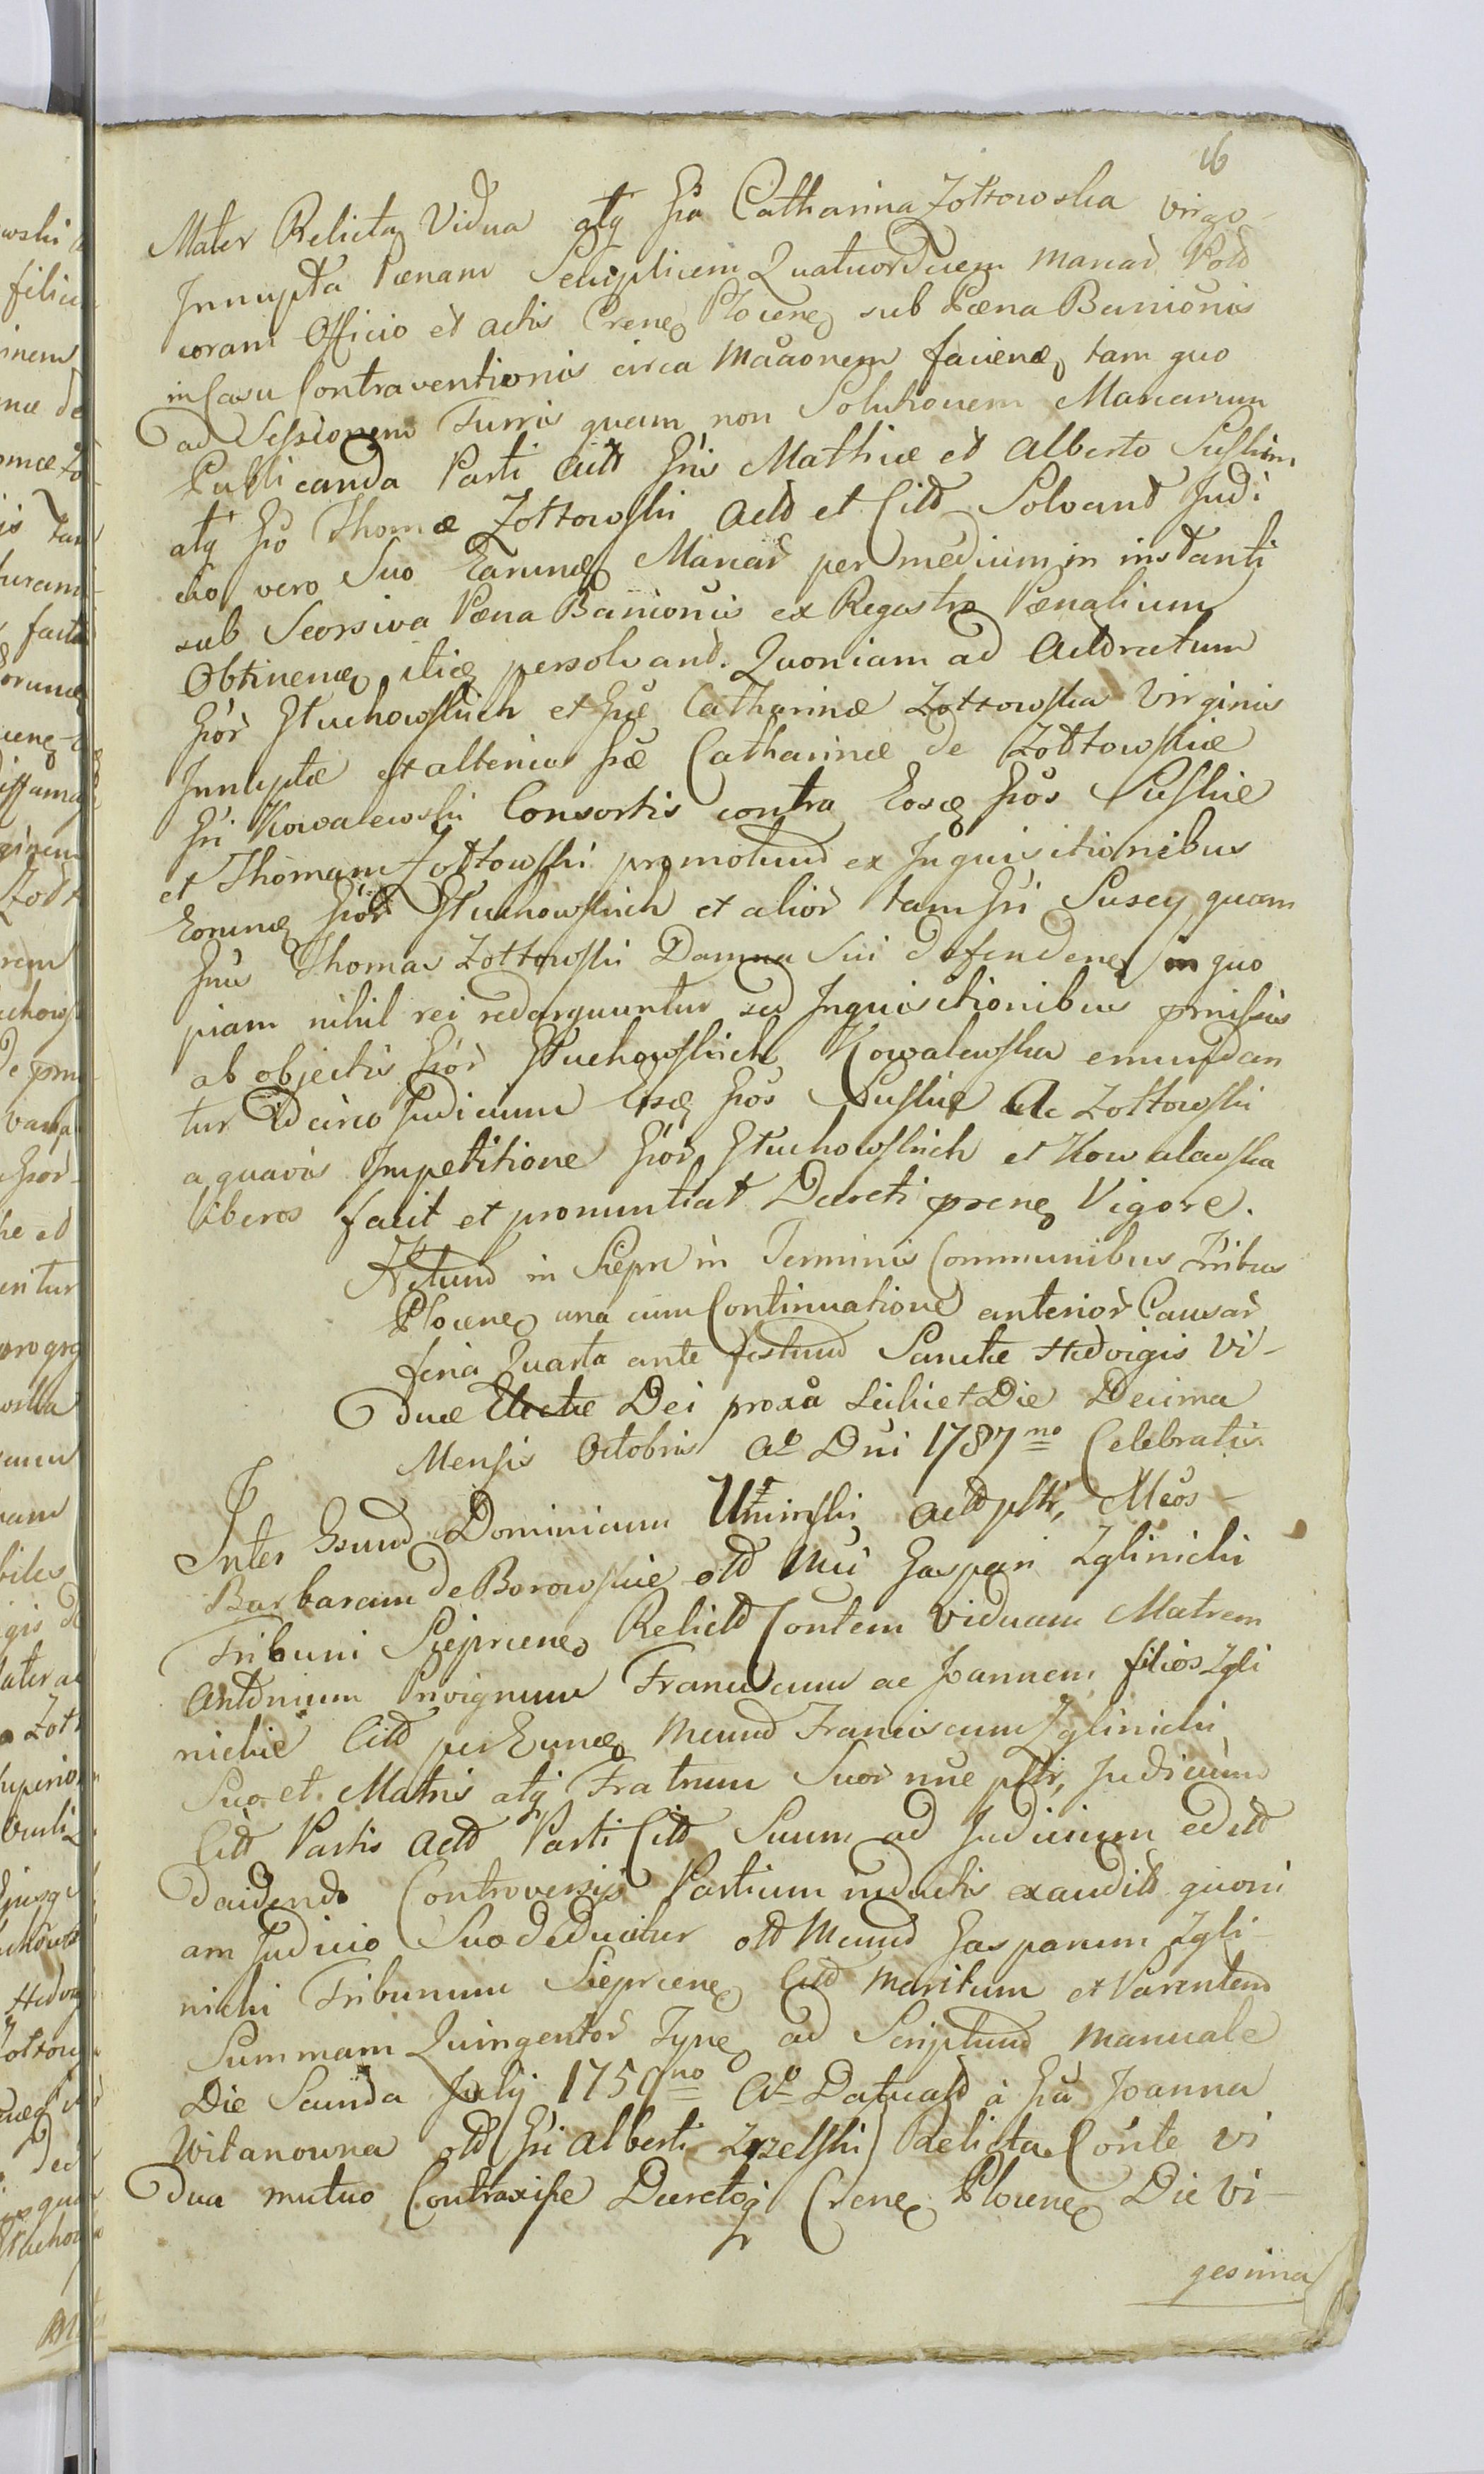 16
Mater Relicta Vidua atq Gsa Catharina Zottowska virgo
Innupta Pænam Quatuordecim Marcar Pold
coram Officio et actis Crenę Plocenę sub Pæna Banionis
in Casu Contraventionis circa facienæ, tam quo
ad Sessionem Turris quam non Solutionem Marcarum
Publicanda Parti Actt Gsis Mathiæ et Alberto Suskim
atq Gso Thomæ Zottowski Actd et Citd Solvant Judi
cio vero Suo Earunæ Marcar per medium in instanti
sub Seorsiva Pæna Banionis ex Regestro Pænalium
Obtinenæ itiæ persolvant. Quoniam ad Actoratum
Gsór Głuchowskich et Gsæ Catharinæ Zottowska Virginis
Innuptæ et alterius Gsæ Catharinæ de Zottowskie
Gsi Kowalewski Consortis contra Eosæ Gsos Suskie
et Thomam Zottowski promotum ex Inquisitionibus
Eorunæ Gsór Głuchowskich et alior tam Gsi Suscy quam
Gsus Thomas Zottowski Damna Sui defendenę in quo
piam nihil rei redarguuntur sed Inquisitionibus pmissis
ab objectis Gsór Głuchowskich Kowalewska emundan
tur Idcirco Judicium Eosæ Gsos Suskie Ac Zottowski
a quavis Impetitione Gsór Głuchowskich et Kowalewska
liberos facit et pronuntiat Decreti prænę Vigore.
Actum in Siepre in Terminis Communibus Tribus
Plocenę una cum Continuatione anterior Causar
feria Quarta ante festum Sanctæ Hedvigis Vi-
duæ Electæ Dei proxa Scilicet Die Decima
Mensis Octobris Ao Dni 1787no Celebratis
Inter Gsum Dominicum Uminski actd pstr, Mcos
Barbaram de Borowskie old Mci Gaspari Zglinicki
Tribuni Sieprcenę Relictd Contem Viduam Matrem
Antonium Privignum Franciscum ac Joannem filios Zgli
nickie Citd per Eunæ Mcum Franciscum Zglinicki
Suo et Matris atq Fratrum Suor nne pttr, Judicium
Citd Partis Actd Parti Citd Suum ad Judicium editd
Daidendo Controversys Partium inductis exauditd quoni
am Judicio Suo deducitur old Mcum Gasparum Zgli
nicki Tribunum Sieprcenę Citd Maritum et Parentem
Summam Quingentor Tynę ad Scriptum Manuale
Die Secunda July 1759no Ao Datuatd à Gsa Joanna
Witanowna old Gsi Alberti Zizelski Relicta Conte vi
dua mutuo Contraxisse Decretoq Crenę Plocenę Die Vi-
gesima